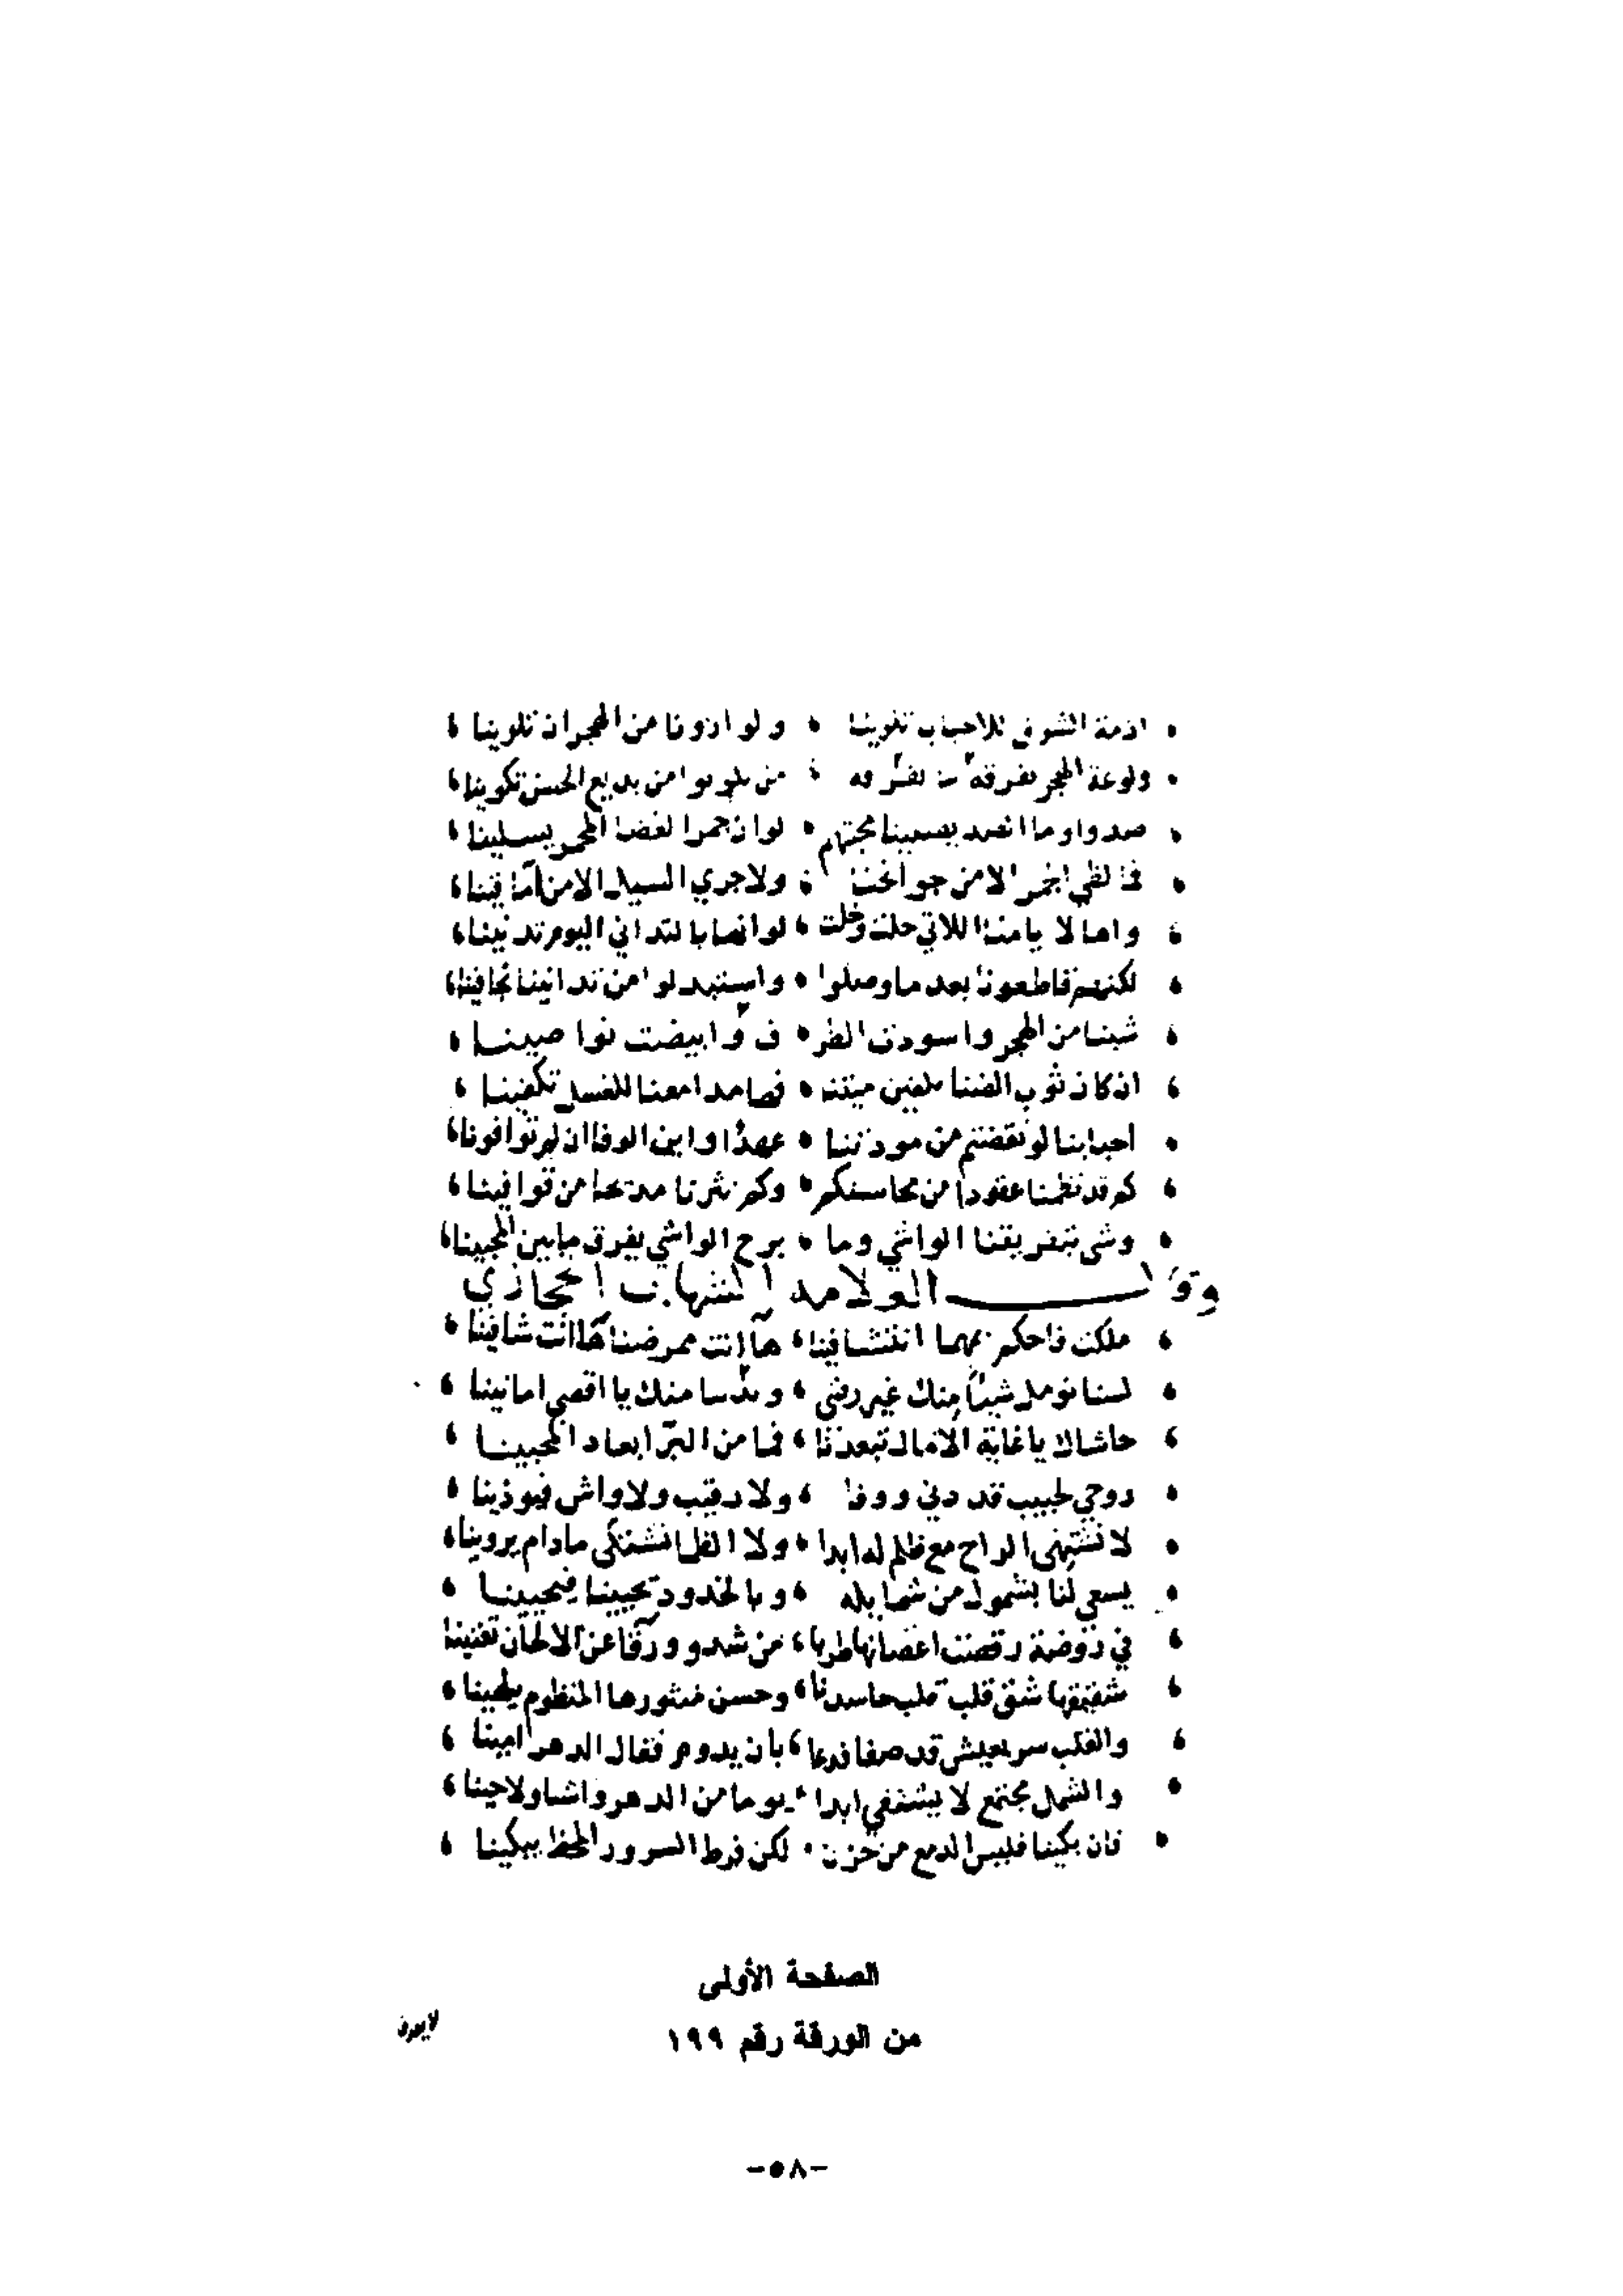 ازمة الشوق للاحباب تلوينا ولو ارونا من الهجران تلوينا
ولوعة الهجر نفرقه من بديع الحسن تكوينا
صدوا وما الصد يصبينا محبتهم لو ان جمر الغضا الهجر يسلينا
فما لظى الجمر الا من جوانحنا ولا جرى السيل الا من آماقينا
واها لا يامنا اللاتي حلت وخلت لو انها بالتداني اليوم تدنينا
لكنهم قاطعونا بعد ما وصلوا واستبدلوا من تدانينا تجافينا
شبنا من الهجر واسودت الظرو ف وابيضت نواصينا
ان كان ثوب الضنا ميتنه فها مدامعنا للغسل تكفينا
احبابنا لو نقضتم من مودتنا عهدا واين الوفا ان لم توافونا
كم قد نظمنا عقودا من محاسنكم وكم نثرنا مدحا من قوافينا
وشى بتفريقنا الواشي وما برح الواشي يفرق ما بين المحبينا
وقال العلامه الشهاب الحجازي
ملكت فاحكم بمهما انت شافينا ها انت ممرضنا ها انت شافينا
لسنا نومل شيأ منك غير رضى منك يا اقصى امانينا
حاشاك يا غاية الآمال تبعدنا فما من البر ابعاد المحبينا
روحي لحبيب قد دنى ووفا ولا رقيب ولا واش فيوذينا
لا نشتهى الراح مع ظلم له ابدا ولا الظما نشتكى مادام يروينا
يسعى لنا بشمول من شمايله وبالخدود تحيينا فيحيينا
في روضة رقصت اغصانها طربا من شدو ورقا عن الالحان تغنينا
شقيقها شق قلب قلب حاسدنا وحسن منثورها المنظوم يلهينا
والقلب سر بعيش قد صفا فدعا بان يدوم فقال الدهر امينا
والشمل مجتمع لا يشتفي ابدا يوما من الدهر واشنا ولاحينا
فان بكينا فليس الدمع من حزن لكن فرط السرور المحظ يبكينا
الصفحة الأولى
من الورقة رقم ١٩٩
-٥٨-